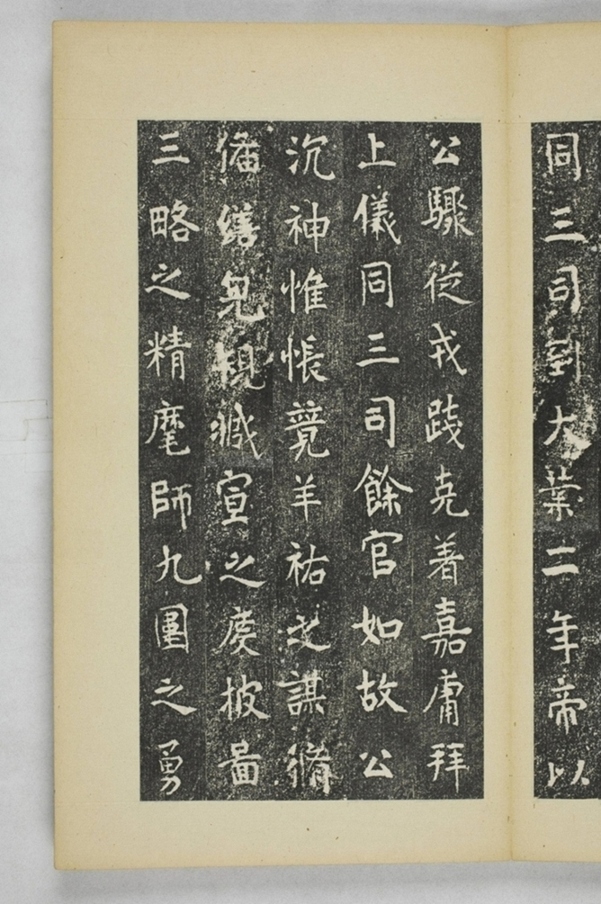 同三司到大葉二年帝以
公驟從戎踐克著嘉庸拜
上儀同三司餘官如故公
沉神惟悵竟羊祜之謀脩
備繕甲規臧宣之虔披圖
三略之精麾師九圍之勇